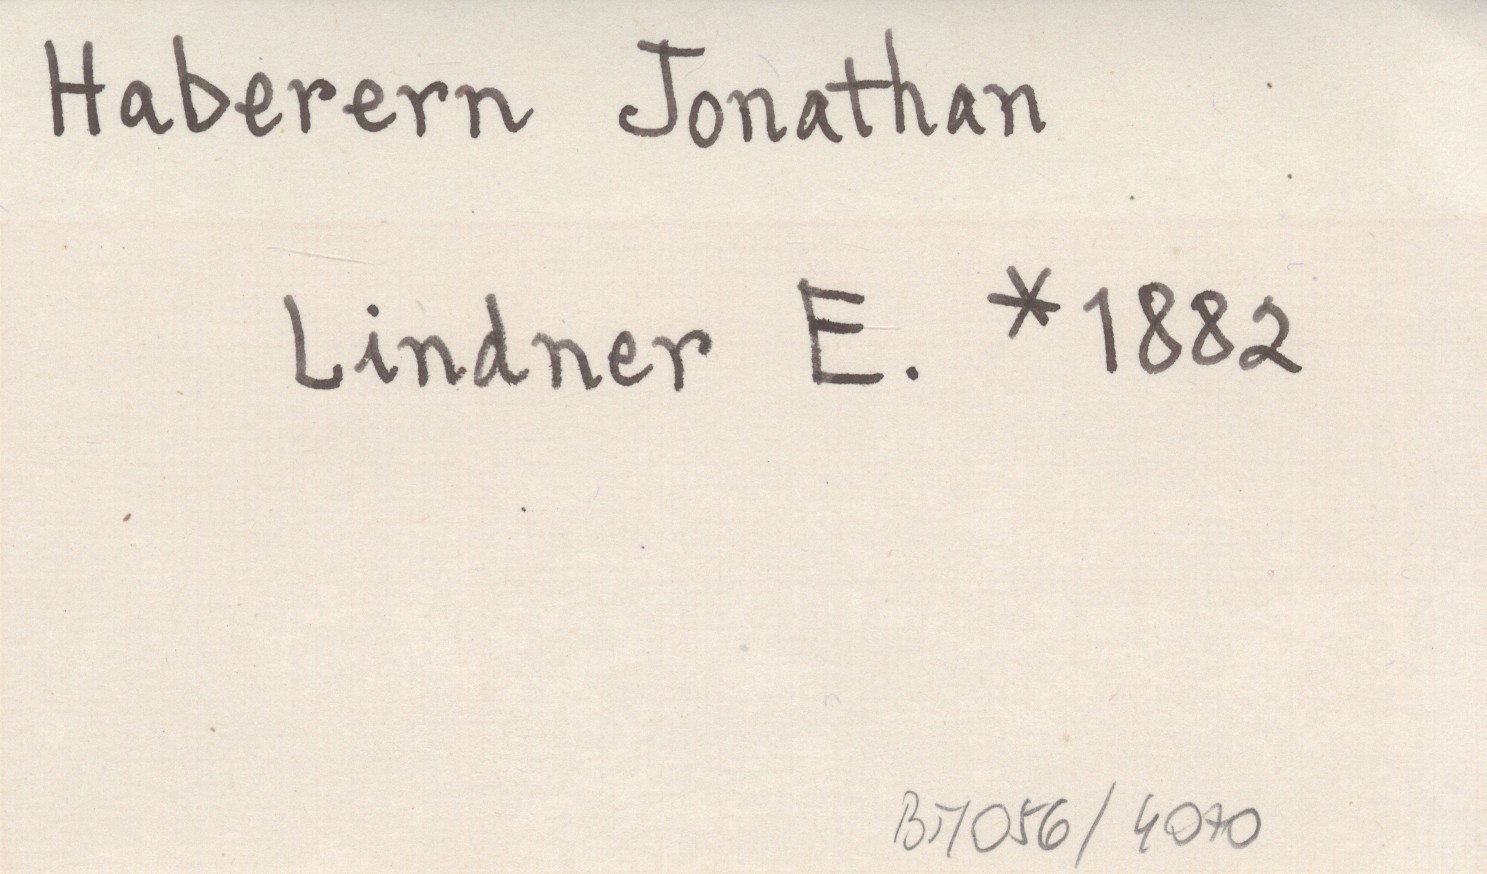 Haberern Jonathan
Lindner E. *1882
/ 4070